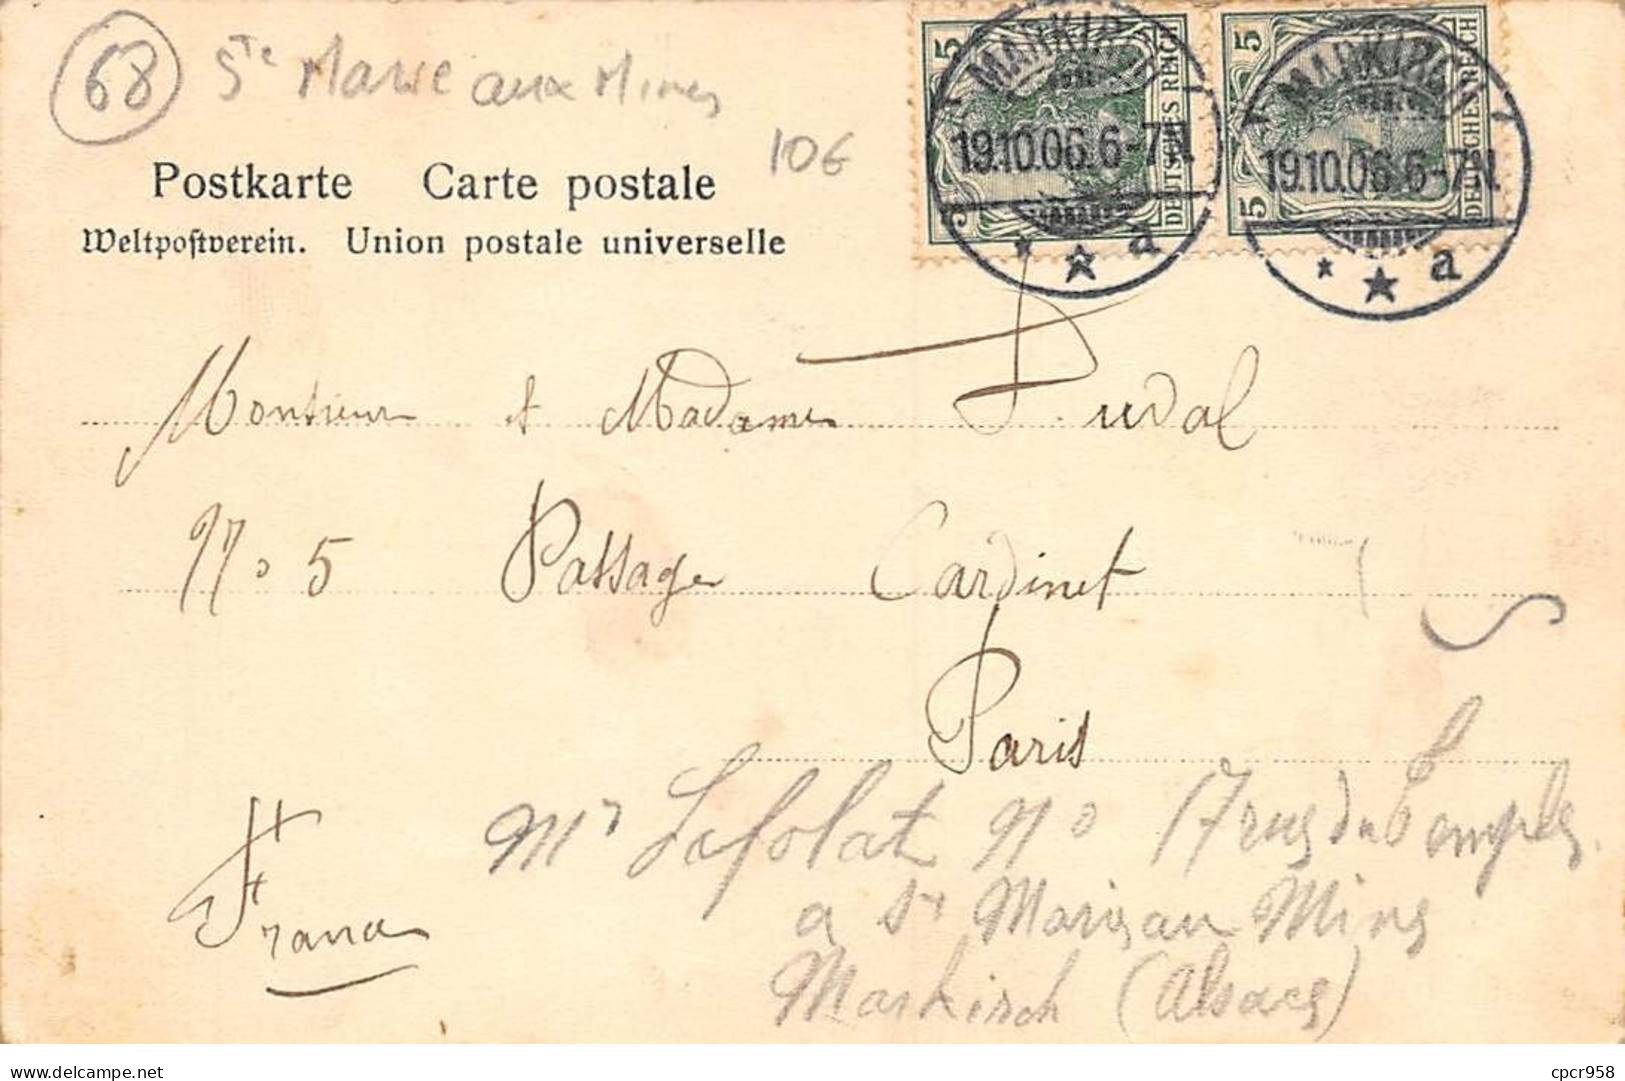 68 Ste Marie aux Mines
10€
Postkarte Carte postale
Weltpostverein. Union postale universelle
5 5 DEUTSCHES REICH
MARKIRCH
19.10.06.6-7N.
a
5 5 DEUTSCHES REICH
MARKIRCH
19.10.06.6-7N.
a
Monsieur et Madame Duval
No 5 Passage Cardinet
Paris
France
Mr Lafolat No 17 rue du Temple
a St Marie au Mine
Markirch (Alsace)
cpcr958